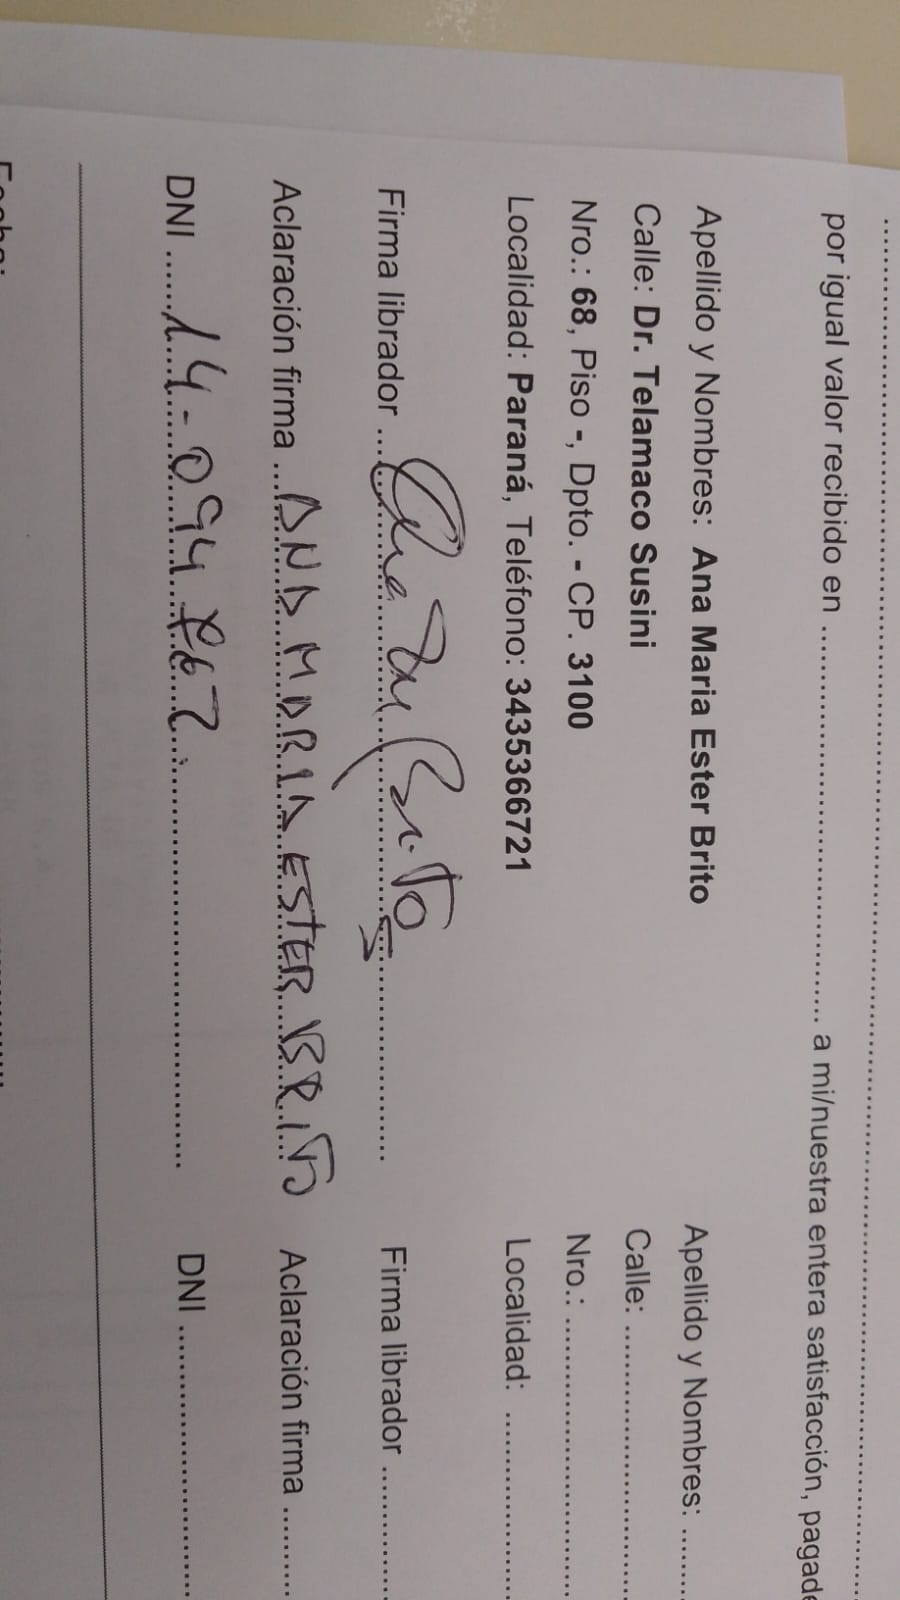 por igual valor recibido en ........................................ a mi/nuestra entera satisfacción,
Apellido y Nombres: Ana Maria Ester Brito
Calle: Dr. Telamaco Susini
Nro.: 68, Piso -, Dpto. - CP. 3100
Localidad: Paraná, Teléfono: 3435366721
Firma librador ... Brito
Aclaración firma ... ANA MARIA ESTER BRITO
DNI ...... 14-094 767
Apellido y Nombres: ........
Calle: ........................
Nro.: ........................
Localidad: ................
Firma librador ............
Aclaración firma .........
DNI ........................